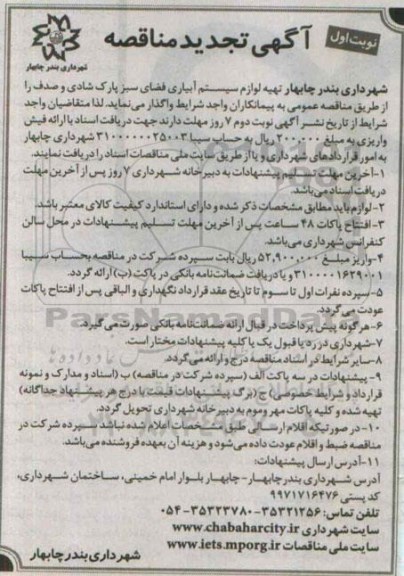 نوبت اول
آگهی تجدید مناقصه
شهرداری بندر چابهار
شهرداری بندر چابهار تهیه لوازم سیستم آبیاری فضای سبز پارک شادی و صدف را
از طریق مناقصه عمومی به پیمانکاران واجد شرایط واگذار می‌نماید. لذا متقاضیان واجد
شرایط از تاریخ نشر آگهی نوبت دوم ۷ روز مهلت دارند جهت دریافت اسناد با ارائه فیش
واریزی به مبلغ ۲۰۰۰۰۰۰ ریال به حساب سیبا ۳۱۰۰۰۰۰۰۲۵۰۰۳ شهرداری چابهار
به امور قراردادهای شهرداری و یا از طریق سایت ملی مناقصات اسناد را دریافت نمایند.
۱-آخرین مهلت تسلیم پیشنهادات به دبیرخانه شهرداری ۷ روز پس از آخرین مهلت
دریافت اسناد می‌باشد.
۲-لوازم باید مطابق مشخصات ذکر شده و دارای استاندارد کیفیت کالای معتبر باشد.
۳-افتتاح پاکات ۴۸ ساعت پس از آخرین مهلت تسلیم پیشنهادات در محل سالن
کنفرانس شهرداری می‌باشد.
۴-واریز مبلغ ۵۲,۹۰۰,۰۰۰ ریال بابت سپرده شرکت در مناقصه بحساب سیبا
۳۱۰۰۰۰۱۶۲۹۰۰۱ و یا دریافت ضمانت‌نامه بانکی در پاکت (ب) ارائه گردد.
۵-سپرده نفرات اول تا سوم تا تاریخ عقد قرارداد نگهداری و الباقی پس از افتتاح پاکات
عودت می‌گردد.
۶-هرگونه پیش پرداخت در قبال ارائه ضمانت‌نامه بانکی صورت می‌گیرد.
۷-شهرداری در رد یا قبول یک یا کلیه پیشنهادات مختار است.
۸-سایر شرایط در اسناد مناقصه درج و ارائه می‌گردد.
۹-پیشنهادات در سه پاکت الف (سپرده شرکت در مناقصه) ب (اسناد و مدارک و نمونه
قرارداد و شرایط خصوصی) ج (برگ پیشنهادات قیمت با درج هر پیشنهاد جداگانه)
تهیه شده و کلیه پاکات مهر و موم به دبیرخانه شهرداری تحویل گردد.
۱۰-در صورتیکه اقلام ارسالی طبق مشخصات اعلام شده نباشد سپرده شرکت در
مناقصه ضبط و اقلام عودت داده می‌شود و هزینه آن بعهده فروشنده می‌باشد.
۱۱-آدرس ارسال پیشنهادات:
آدرس شهرداری بندر چابهار-چابهار بلوار امام خمینی، ساختمان شهرداری،
کد پستی ۹۹۷۱۷۱۶۴۷۶
تلفن تماس: ۳۵۳۲۱۲۵۶-۳۵۳۲۳۷۸۰-۰۵۴
سایت شهرداری www.chabaharcity.ir
سایت ملی مناقصات www.iets.mporg.ir
شهرداری بندر چابهار
ParsNamadData